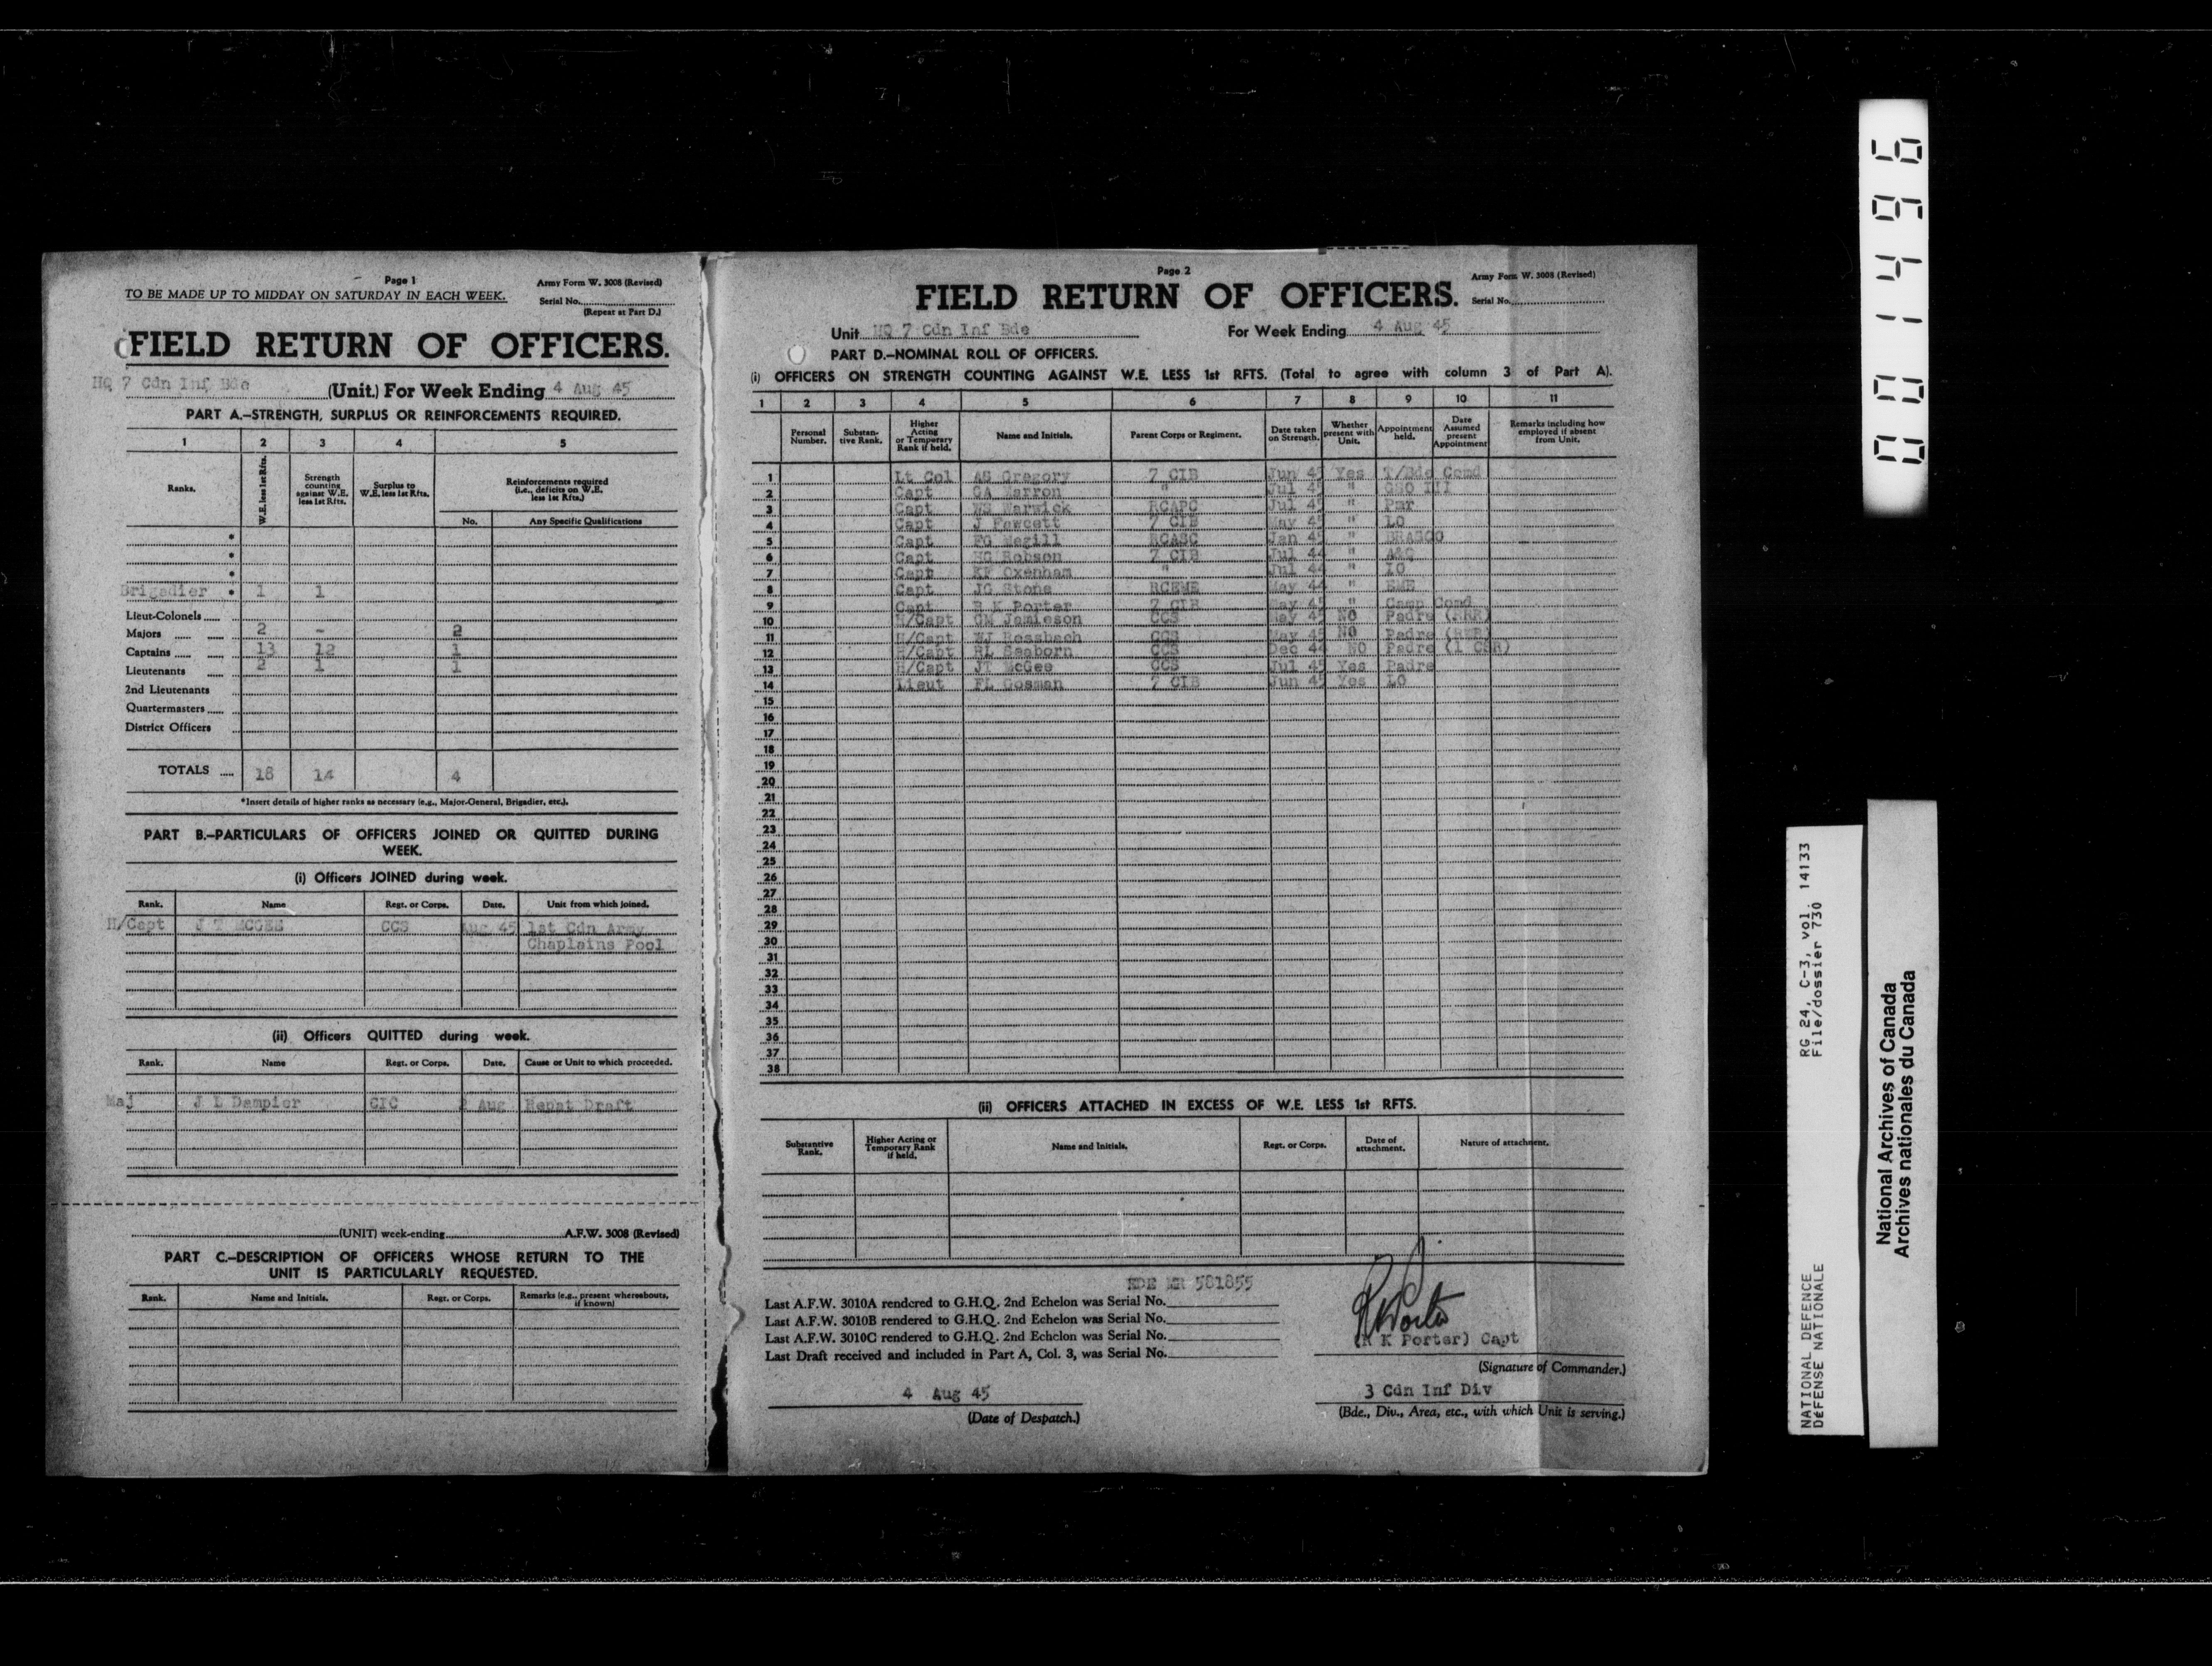 Page 1
Army Form W. 3008 (Revised)
TO BE MADE UP TO MIDDAY ON SATURDAY IN EACH WEEK.
Serial No.
(Repeat at Part D.)
FIELD RETURN OF OFFICERS.
HQ 7 Cdn Inf Bde (Unit.) For Week Ending 4 Aug 45
PART A.—STRENGTH, SURPLUS OR REINFORCEMENTS REQUIRED.
1 2 3 4 5
Ranks. W.E. less 1st Rfts. Strength counting against W.E. less 1st Rfts. Surplus to W.E. less 1st Rfts. Reinforcements required (i.e., deficits on W.E. less 1st Rfts.)
No. Any Specific Qualifications
*
*
*
Brigadier * 1 1
Lieut-Colonels
Majors 2 - 2
Captains 13 12 1
Lieutenants 2 1 1
2nd Lieutenants
Quartermasters
District Officers
TOTALS 18 14 4
*Insert details of higher ranks as necessary (e.g., Major-General, Brigadier, etc.).
PART B.—PARTICULARS OF OFFICERS JOINED OR QUITTED DURING
WEEK.
(i) Officers JOINED during week.
Rank. Name Regt. or Corps. Date. Unit from which joined.
H/Capt J T MCGEE CCS Aug 45 1st Cdn Army
Chaplains Pool
(ii) Officers QUITTED during week.
Rank. Name Regt. or Corps. Date. Cause or Unit to which proceeded.
Maj J L Dampier CIC 2 Aug Repat Draft
(UNIT) week-ending A.F.W. 3008 (Revised)
PART C.—DESCRIPTION OF OFFICERS WHOSE RETURN TO THE
UNIT IS PARTICULARLY REQUESTED.
Rank. Name and Initials. Regt. or Corps. Remarks (e.g., present whereabouts, if known)
Page 2
Army Form W. 3008 (Revised)
FIELD RETURN OF OFFICERS.
Serial No.
Unit HQ 7 Cdn Inf Bde For Week Ending 4 Aug 45
PART D.—NOMINAL ROLL OF OFFICERS.
(i) OFFICERS ON STRENGTH COUNTING AGAINST W.E. LESS 1st RFTS. (Total to agree with column 3 of Part A).
1 2 3 4 5 6 7 8 9 10 11
Personal Number. Substantive Rank. Higher Acting or Temporary Rank if held. Name and Initials. Parent Corps or Regiment. Date taken on Strength. Whether present with Unit. Appointment held. Date Assumed present Appointment Remarks including how employed if absent from Unit.
1 Lt Col AS Gregory 7 CIB Jun 45 Yes T/Bde Comd
2 Capt CA Warron " Jul 45 " GSO III
3 Capt WS Warwick RCAPC Jul 45 " Pmr
4 Capt J Fawcett 7 CIB May 45 " LO
5 Capt FG Megill RCASC Jan 45 " BRASCO
6 Capt HG Robson 7 CIB Jul 44 " A&Q
7 Capt KF Oxenham " Jul 44 " IO
8 Capt JG Stone RCEME May 44 " EME
9 Capt R K Porter 7 CIB May 45 " Camp Comd
10 H/Capt CM Jamieson CCS May 45 NO Padre (RRR)
11 H/Capt WJ Rossbach CCS May 45 NO Padre (RWR)
12 H/Capt RL Seaborn CCS Dec 44 NO Padre (1 CSR)
13 H/Capt JT McGee CCS Jul 45 Yes Padre
14 Lieut FL Gosman 7 CIB Jun 45 Yes LO
15
16
17
18
19
20
21
22
23
24
25
26
27
28
29
30
31
32
33
34
35
36
37
38
(ii) OFFICERS ATTACHED IN EXCESS OF W.E. LESS 1st RFTS.
Substantive Rank. Higher Acting or Temporary Rank if held. Name and Initials. Regt. or Corps. Date of attachment. Nature of attachment.
MR 581855
Last A.F.W. 3010A rendered to G.H.Q. 2nd Echelon was Serial No.
Last A.F.W. 3010B rendered to G.H.Q. 2nd Echelon was Serial No.
Last A.F.W. 3010C rendered to G.H.Q. 2nd Echelon was Serial No.
Last Draft received and included in Part A, Col. 3, was Serial No.
RK Porter
(R K Porter) Capt
(Signature of Commander.)
4 Aug 45
(Date of Despatch.)
3 Cdn Inf Div
(Bde., Div., Area, etc., with which Unit is serving.)
001496
RG 24, C-3, vol. 14133
File/dossier 730
NATIONAL DEFENCE
DÉFENSE NATIONALE
National Archives of Canada
Archives nationales du Canada